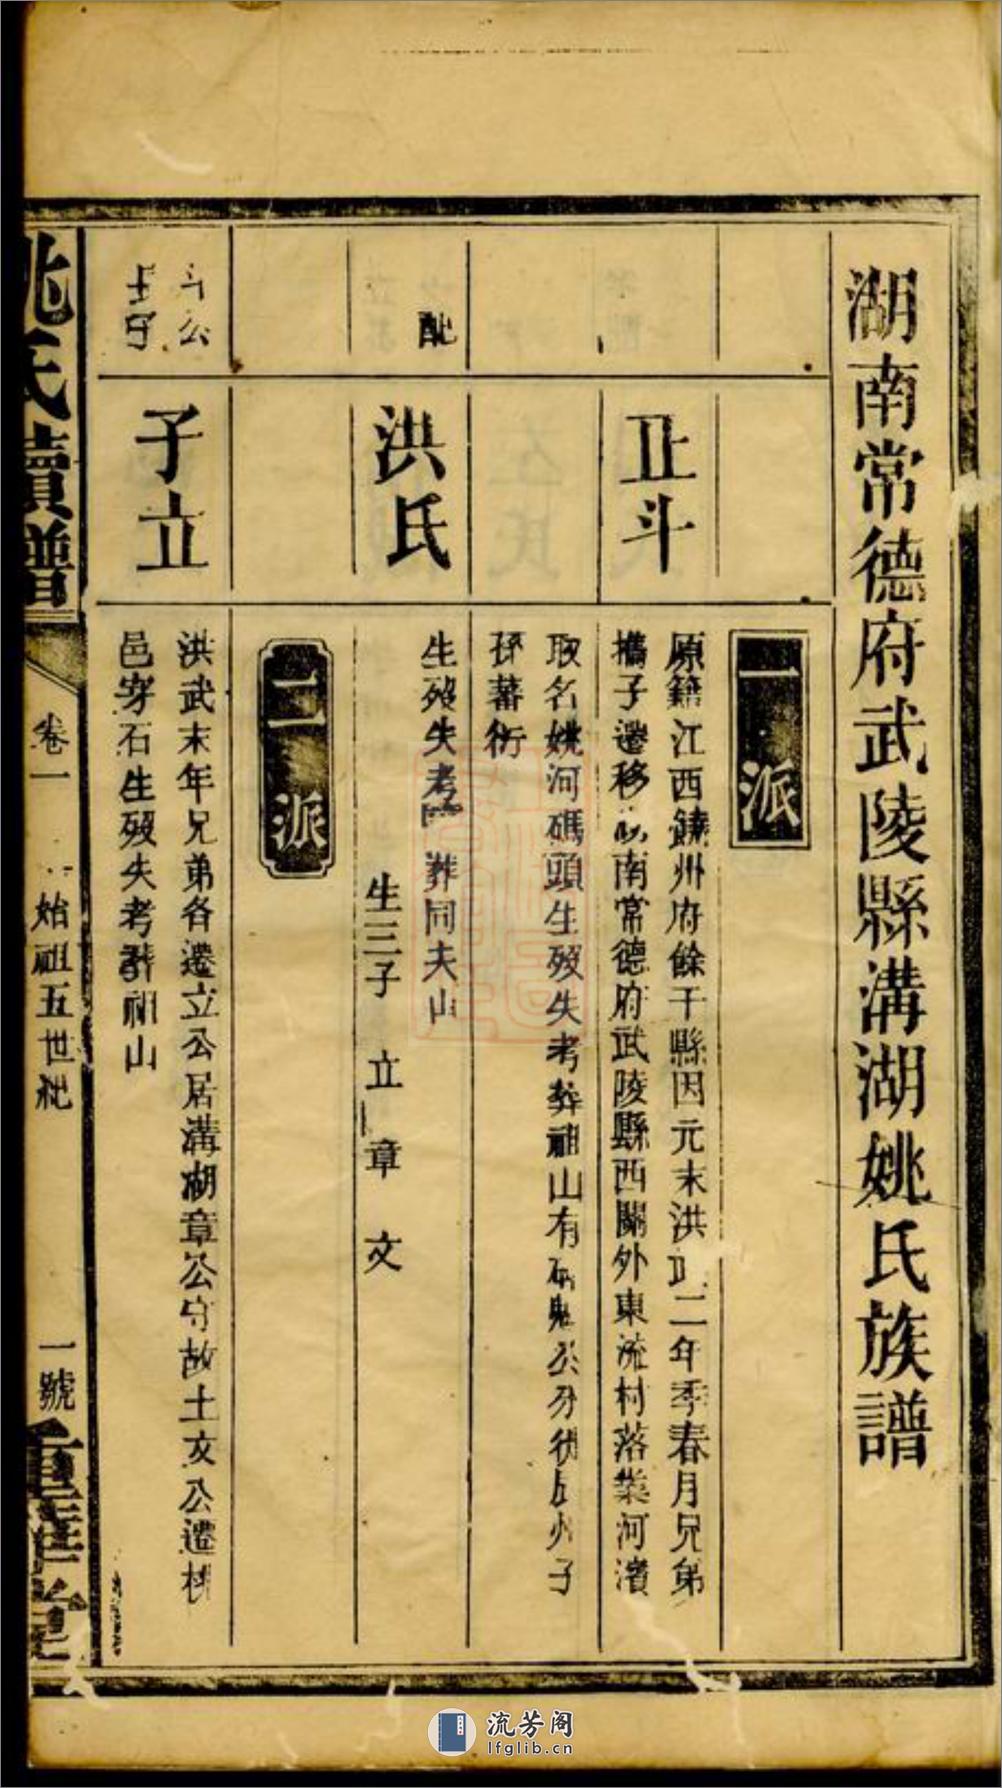 湖南常德府武陵縣溝湖姚氏族譜
一派
正斗
原籍江西饒州府餘干縣因元末洪武二年季春月兄弟
攜子遷移 南常德府武陵縣西關外東流村落業河濱
取名姚河碼頭生歿失考葬祖山有 公分徙 州子
孫蕃衍
配
洪氏
生歿失考 葬同夫山
生三子 立 章 文
二派
斗公
子
子立
洪武末年兄弟各遷立公居溝湖章公守故土文公遷桃
邑穿石生歿失考葬祖山
姚氏續譜
卷一
始祖五世紀
一號
重華堂
流芳阁
lfglib.cn